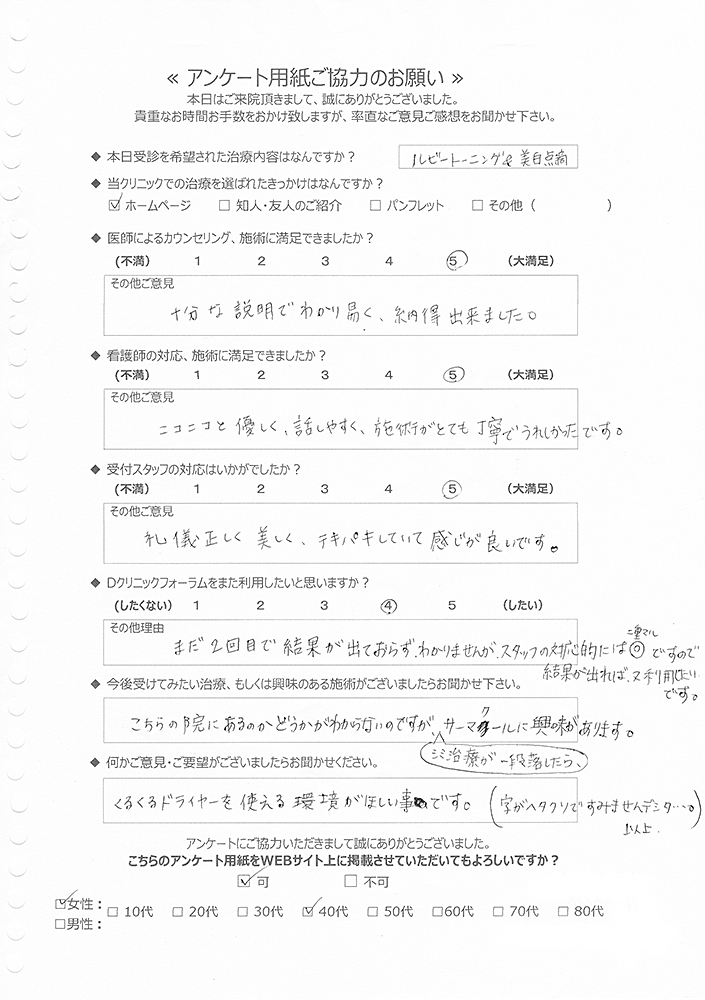 ≪ アンケート用紙ご協力のお願い ≫
本日はご来院頂きまして、誠にありがとうございました。
貴重なお時間お手数をおかけ致しますが、率直なご意見ご感想をお聞かせ下さい。
◆ 本日受診を希望された治療内容はなんですか？ ルビートーニング& 美白点滴
◆ 当クリニックでの治療を選ばれたきっかけはなんですか？
☑ ホームページ □ 知人・友人のご紹介 □ パンフレット □ その他（ ）
◆ 医師によるカウンセリング、施術に満足できましたか？
(不満） 1 2 3 4 ⑤ (大満足）
その他ご意見
十分な説明でわかり易く、納得出来ました。
◆ 看護師の対応、施術に満足できましたか？
(不満） 1 2 3 4 ⑤ (大満足）
その他ご意見
ニコニコと優しく、話しやすく、施術がとても丁寧でうれしかったです。
◆ 受付スタッフの対応はいかがでしたか？
(不満） 1 2 3 4 ⑤ (大満足）
その他ご意見
礼儀正しく美しく、テキパキしていて感じが良いです。
◆ Dクリニックフォーラムをまた利用したいと思いますか？
(したくない） 1 2 3 ④ 5 (したい）
その他理由
まだ2回目で結果が出ておらず、わかりませんが、スタッフの対応的には◎ですので
二重マル
結果が出れば、又利用したい
です。
◆ 今後受けてみたい治療、もしくは興味のある施術がございましたらお聞かせ下さい。
こちらの院にあるのかどうかがわからないのですが、サーマクールに興味があります。
シミ治療が一段落したら、
◆ 何かご意見・ご要望がございましたらお聞かせください。
くるくるドライヤーを使える環境がほしい事です。
(字がヘタクソですみませんデシタ…。)
以上.
アンケートにご協力いただきまして誠にありがとうございました。
こちらのアンケート用紙をWEBサイト上に掲載させていただいてもよろしいですか？
☑ 可 □ 不可
☑女性： □ 10代 □ 20代 □ 30代 ☑ 40代 □ 50代 □60代 □ 70代 □ 80代
□男性：